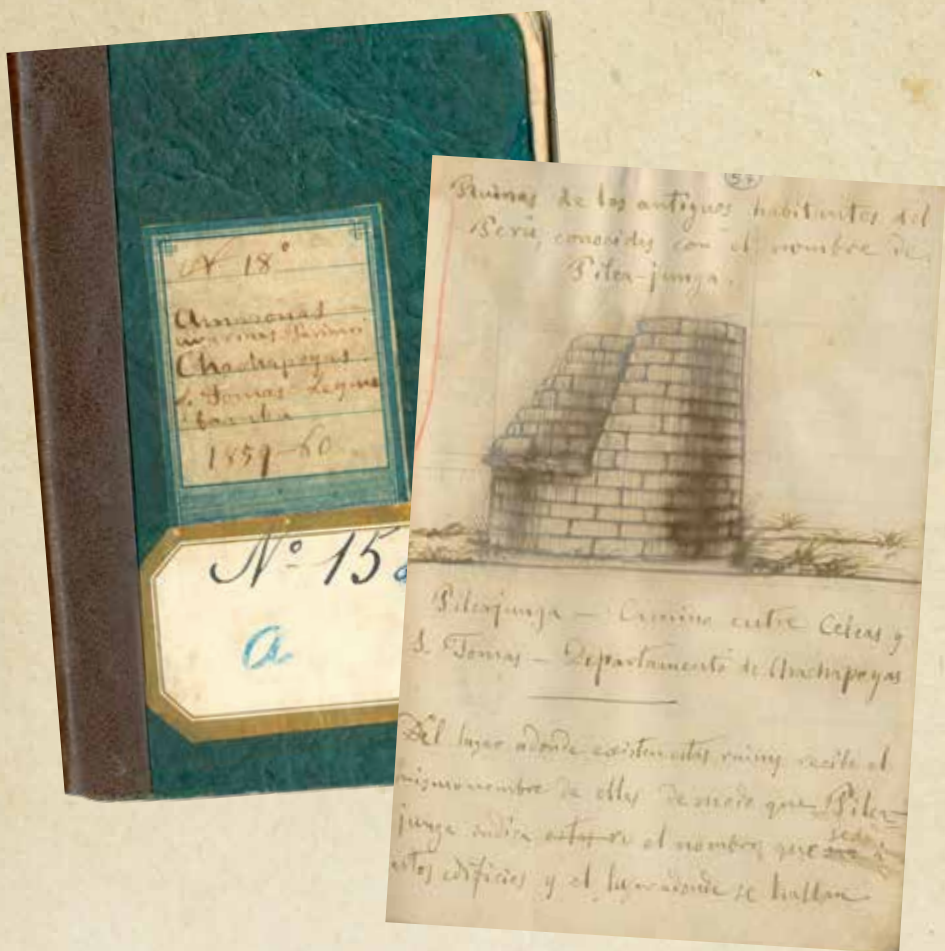 N 18°
Amazonas
Chachapoyas
S. Tomas
1859-60
Nº 15
a
57
Ruinas de los antiguos habitantes del
Perú, conocidas con el nombre de
Pilca-junga.
Pilcajunga — Camino entre Celeas y
S. Tomas — Departamento de Chachapoyas
Del lugar adonde existen estas ruinas recibe el
mismo nombre de ellas de modo que Pilca-
junga indica el nombre que
estos edificios y el lugar adonde se hallan